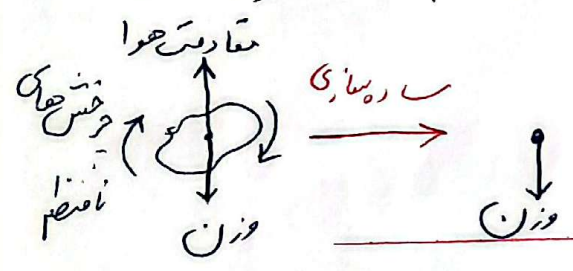 مقاومت هوا
چرخش های
نامنظم
وزن
ساده‌سازی
وزن